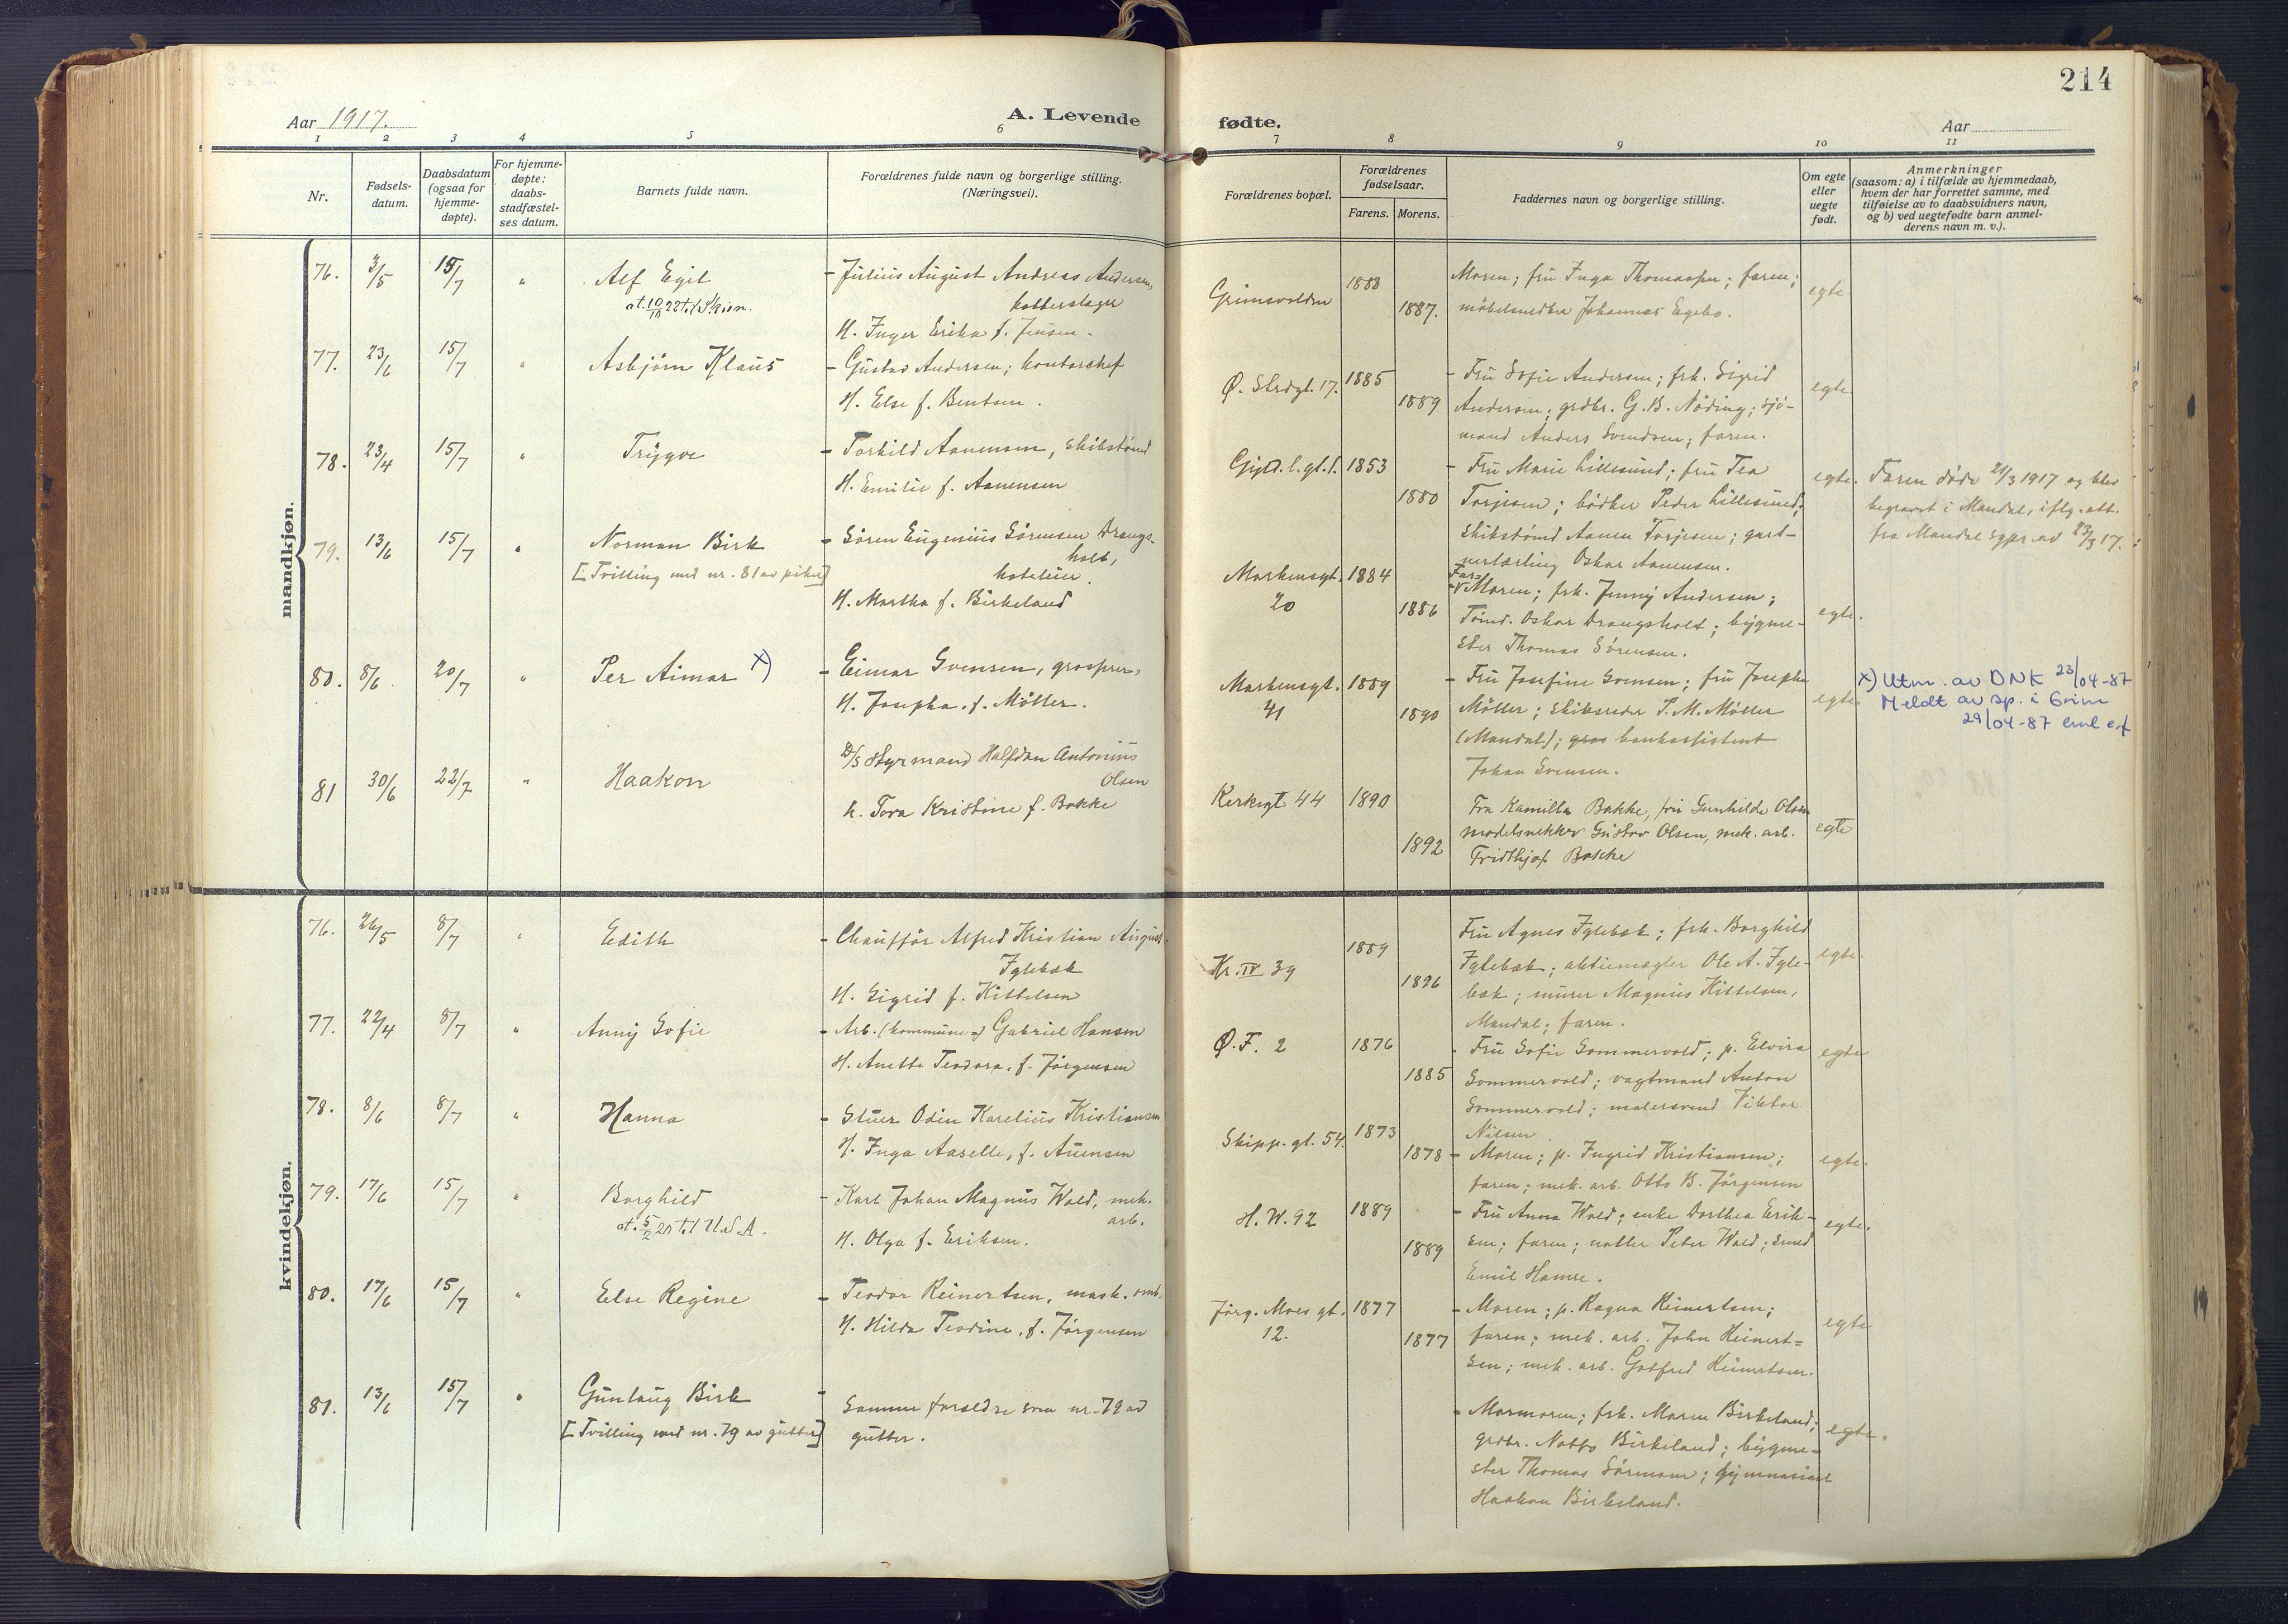 214
Aar 1917.
A. Levende
fødte.
Aar
1 2 3 4 5 6 7 8 9 10 11
Nr.
Fødsels-
datum.
Daabsdatum
(ogsaa for
hjemme-
døpte).
For hjemme-
døpte:
daabs-
stadfæstel-
ses datum.
Barnets fulde navn.
Forældrenes fulde navn og borgerlige stilling.
(Næringsvei).
Forældrenes bopæl.
Forældrenes
fødselsaar.
Farens. Morens.
Faddernes navn og borgerlige stilling.
Om egte
eller
uegte
født.
Anmerkninger
(saasom: a) i tilfælde av hjemmedaab,
hvem der har forrettet samme, med
tilføielse av to daabsvidners navn,
og b) ved uegtefødte barn anmel-
derens navn m. v.).
mandkjøn.
76. 3/5 15/7 " Alf Egil
at. 10/10 22 til Skien.
- Julius August Andreas Andersen,
kobberslager
H. Inger Erika f. Jensen.
Grimsvolden
1888
1887.
Moren; fru Inga Thomassen; faren;
møbelsnedker Johannes Egebo.
egte
77. 23/6 15/7 " Asbjørn Klaus
- Gustav Andersen; kontorchef
H. Else f. Bentsen.
Ø. Strdgt. 17.
1885
1889
- Fru Sofie Andersen; frk. Sigrid
Andersen; grdbr. G. B. Nøding; sjø-
mand Anders Svendsen; faren.
egte
78. 23/4 15/7 " Trygve
- Torkild Aanensen, skibstømd
H. Emilie f. Aanensen
Gyld. l. gt. 1.
1853
1880
- Fru Marie Lillesund; fru Tea
Torjesen; bødker Peder Lillesund;
skibstømd Aanen Torjesen; gart-
nerlærling Oskar Aanensen.
egte.
Faren døde 21/3 1917 og blev
begravet i Mandal, iflg. att.
fra Mandal sgpr. av 23/3 17.
79. 13/6 15/7 " Norman Birk
[Tvilling med nr. 81 av piker]
- Søren Eugenius Sørensen Drangs-
holt,
hoteleier.
H. Martha f. Birkeland
Markensgt.
20
1884
1886
Far-
- Moren; frk. Jenny Andersen;
Tømd. Oskar Drangsholt; bygme-
ster Thomas Sørensen.
egte.
80. 8/6 20/7 " Per Aimar x)
- Eimar Svensen, grosserer,
H. Josepha, f. Møller.
Markensgt.
41
1889
1890
- Fru Josefine Svensen; fru Josepha
Møller; skibsreder P. M. Møller
(Mandal); gros bankassistent
Johan Svensen.
egte.
x) Utm. av DNK 23/04-87
Meldt av sp. i Grim
29/04-87
81 30/6 22/7 " Haakon
D/S styrmand Halfdan Antonius
Olsen
h. Tora Kristine f. Bakke
Kirkegt 44
1890
1892
Fru Kamilla Bakke, fru Gunhilde Olsen
modelsnekker Gustav Olsen, mek. arb.
Fridthjof Bakke
egte
kvindekjøn.
76. 26/5 8/7 " Edith
- Chauffør Alfred Kristian August
Fylebæk
H. Sigrid f. Kittelsen
Kr. IV 39
1889
1896
Fru Agnes Fylebæk; frk. Borghild
Fylebæk; aktiemægler Ole A. Fyle-
bæk; murer Magnus Kittelsen,
Mandal; faren.
egte.
77. 22/4 8/7 " Anny Sofie
- Arb. (kommune-) Gabriel Hansen
H. Anette Teodora, f. Jørgensen
Ø. F. 2
1876
1885
- Fru Sofie Sommervold; p. Elvira
Sommervold; vagtmand Anton
Sommervold; malersvend Viktor
Nilsen
egte
78. 8/6 8/7 " Hanna
- Stuer Odin Karelius Kristiansen
H. Inga Aaselle, f. Auensen
Skipp. gt. 54.
1873
1878
- Moren; p. Ingrid Kristiansen;
faren; mek. arb. Otto B. Jørgensen
egte.
79. 17/6 15/7 " Borghild
at. 5/2 20 til U.S.A.
- Karl Johan Magnus Wold, mek.
arb.
H. Olga f. Eriksen.
H. W. 92
1889
1889
- Fru Anna Wold; enke Dorthea Erik-
sen; faren; Peter Wold; smed
Emil Hamre.
egte.
80. 17/6 15/7 " Else Regine
- Teodor Reinertsen, mask. arb.
H. Hilda Teodine, f. Jørgensen
Jørg. Moes gt.
12.
1877
1877
- Moren; p. Ragna Reinertsen;
faren; mek. arb. John Reinert-
sen; mek. arb. Gotfred Reinertsen.
egte
81. 13/6 15/7 " Gunlaug Birk
[Tvilling med nr. 79 av gutter]
- Samme forældre som nr. 79 av
gutter.
- Mormoren; frk. Maren Birkeland;
grdbr. Notto Birkeland; bygme-
ster Thomas Sørensen; gymnasiast
Haakon Birkeland.
egte.